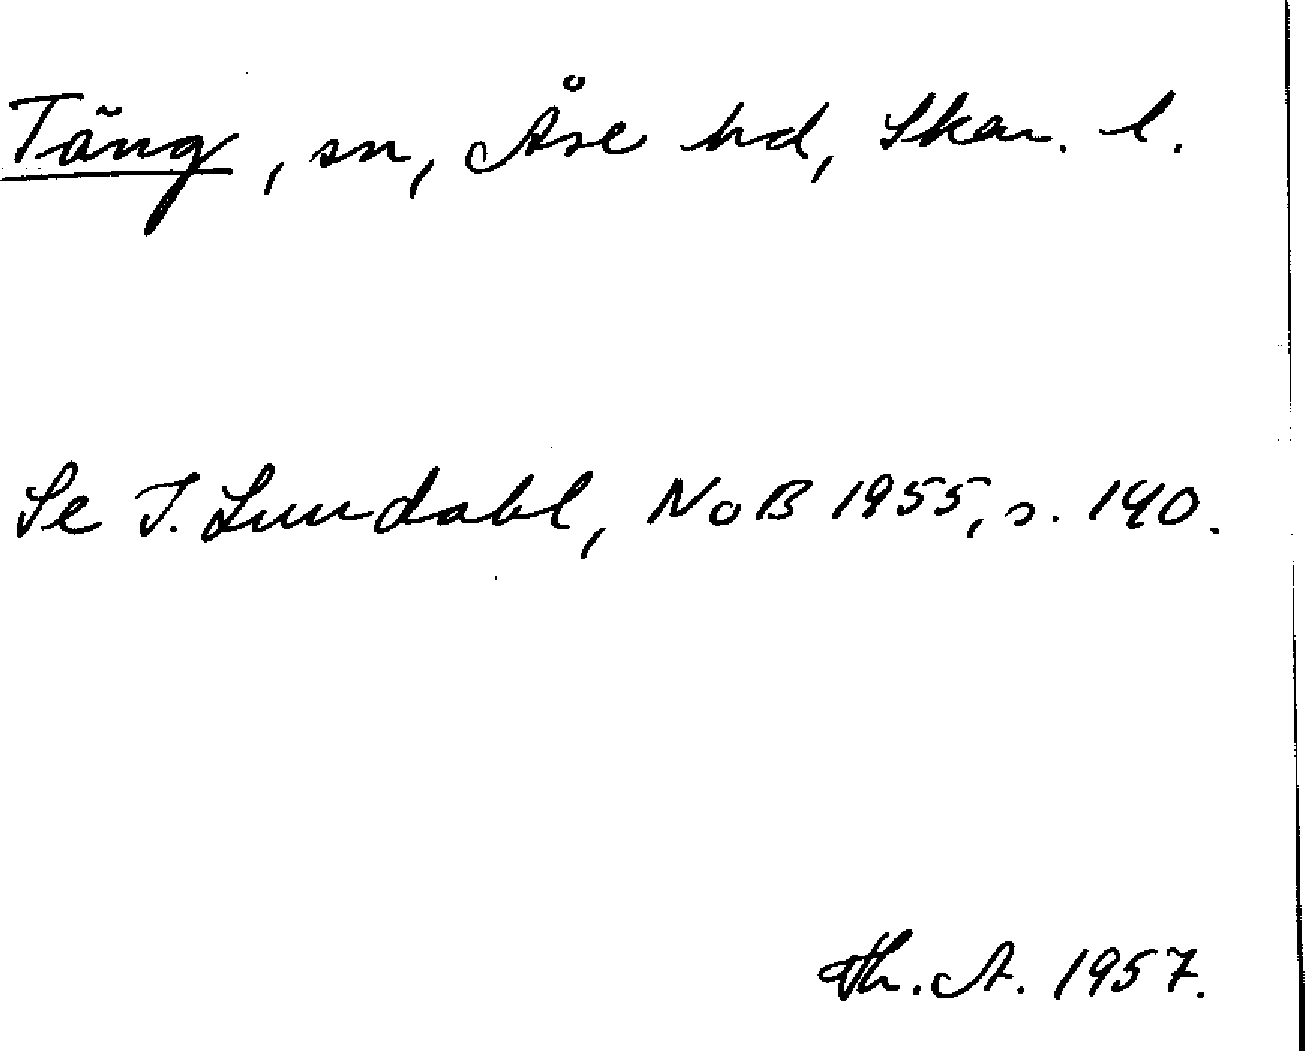 Täng, sn, Åse hd, Skar. l.
Se I. Lundahl, NoB 1955, s. 140.
Th. A. 1957.